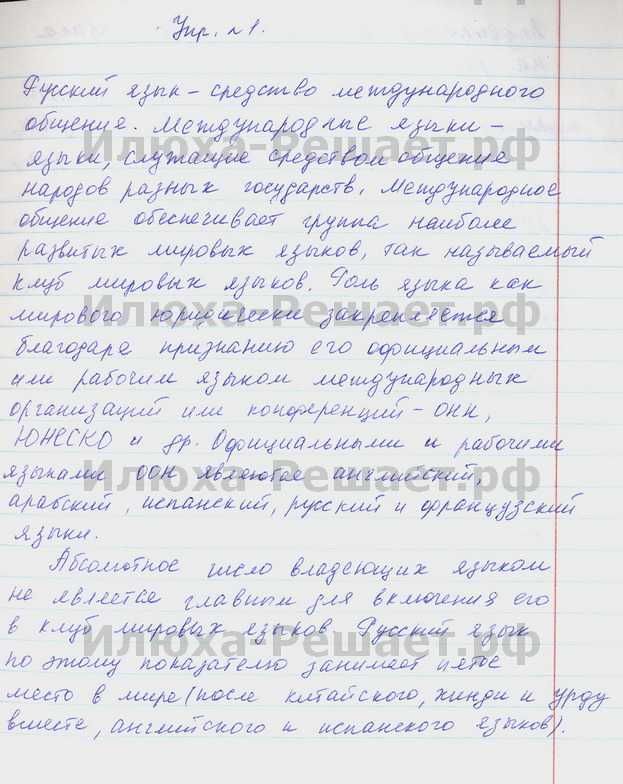 Упр. №1.
Русский язык – средство международного
общения. Международные языки –
языки, служащие средством общения
народов разных государств. Международное
общение обеспечивает группа наиболее
развитых мировых языков, так называемый
клуб мировых языков. Роль языка как
мирового юридически закрепляется
благодаря признанию его официальным
или рабочим языком международных
организаций или конференций – ОНН,
ЮНЕСКО и др. Официальными и рабочими
языками ООН являются английский,
арабский, испанский, русский и французский
языки.
Абсолютное число владеющих языком
не является главным для включения его
в клуб мировых языков. Русский язык
по этому показателю занимает пятое
место в мире (после китайского, хинди и урду
вместе, английского и испанского языков).
Илюха-Решает.рф
Илюха-Решает.рф
Илюха-Решает.рф
Илюха-Решает.рф